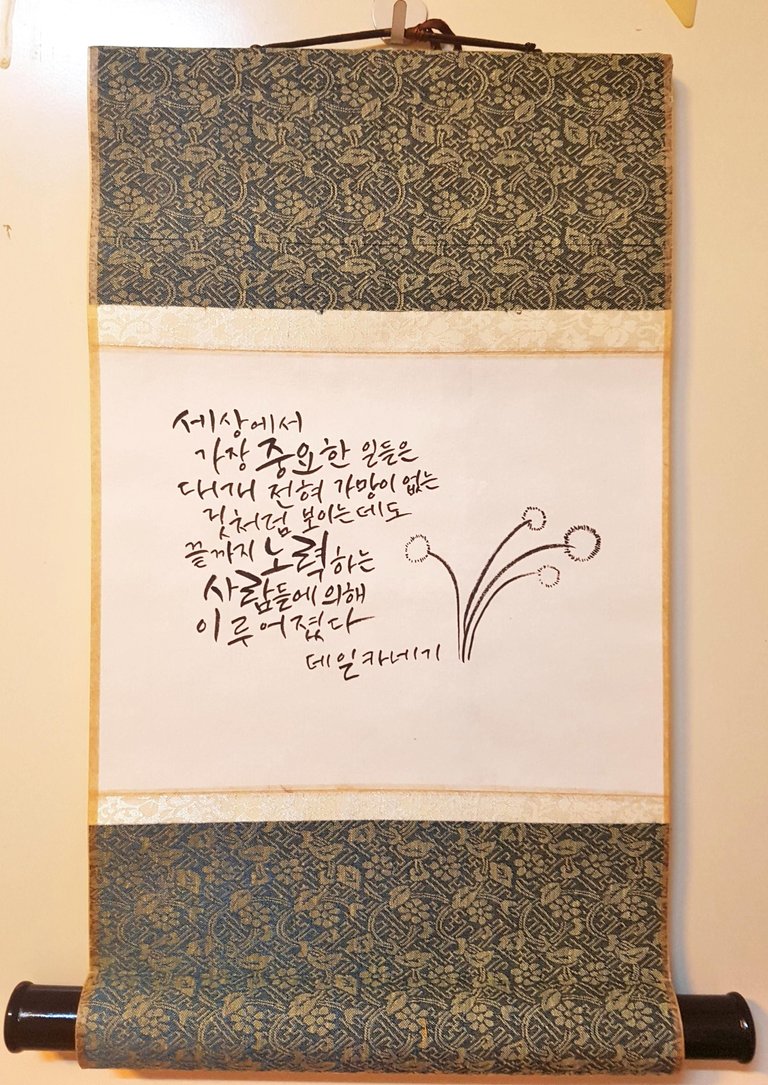 세상에서
가장 중요한 일들은
대개 전혀 가망이 없는
것처럼 보이는데도
끝까지 노력하는
사람들에 의해
이루어졌다
데일카네기